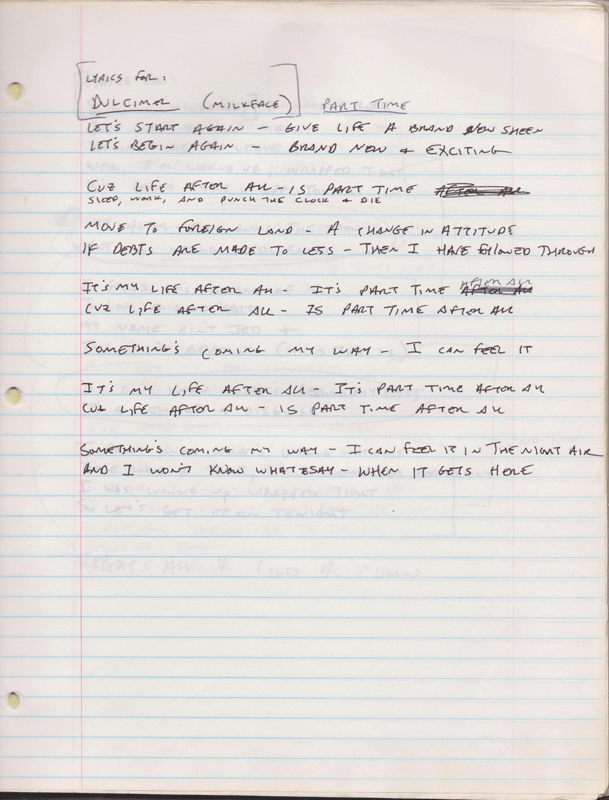 LYRICS FOR:
DULCIMER (MILKFACE) PART TIME
LET'S START AGAIN - GIVE LIFE A BRAND NEW SHEEN
LET'S BEGIN AGAIN - BRAND NEW & EXCITING
CUZ LIFE AFTER ALL - IS PART TIME AFTER ALL
SLEEP, WORK, AND PUNCH THE CLOCK & DIE
MOVE TO FOREIGN LAND - A CHANGE IN ATTITUDE
IF DEBTS ARE MADE TO LESS - THEN I HAVE FOLLOWED THROUGH
AFTER ALL
IT'S MY LIFE AFTER ALL - IT'S PART TIME AFTER ALL
CUZ LIFE AFTER ALL - IS PART TIME AFTER ALL
SOMETHING'S COMING MY WAY - I CAN FEEL IT
IT'S MY LIFE AFTER ALL - IT'S PART TIME AFTER ALL
CUZ LIFE AFTER ALL - IS PART TIME AFTER ALL
SOMETHING'S COMING MY WAY - I CAN FEEL IT IN THE NIGHT AIR
AND I WON'T KNOW WHAT TO SAY - WHEN IT GETS HERE